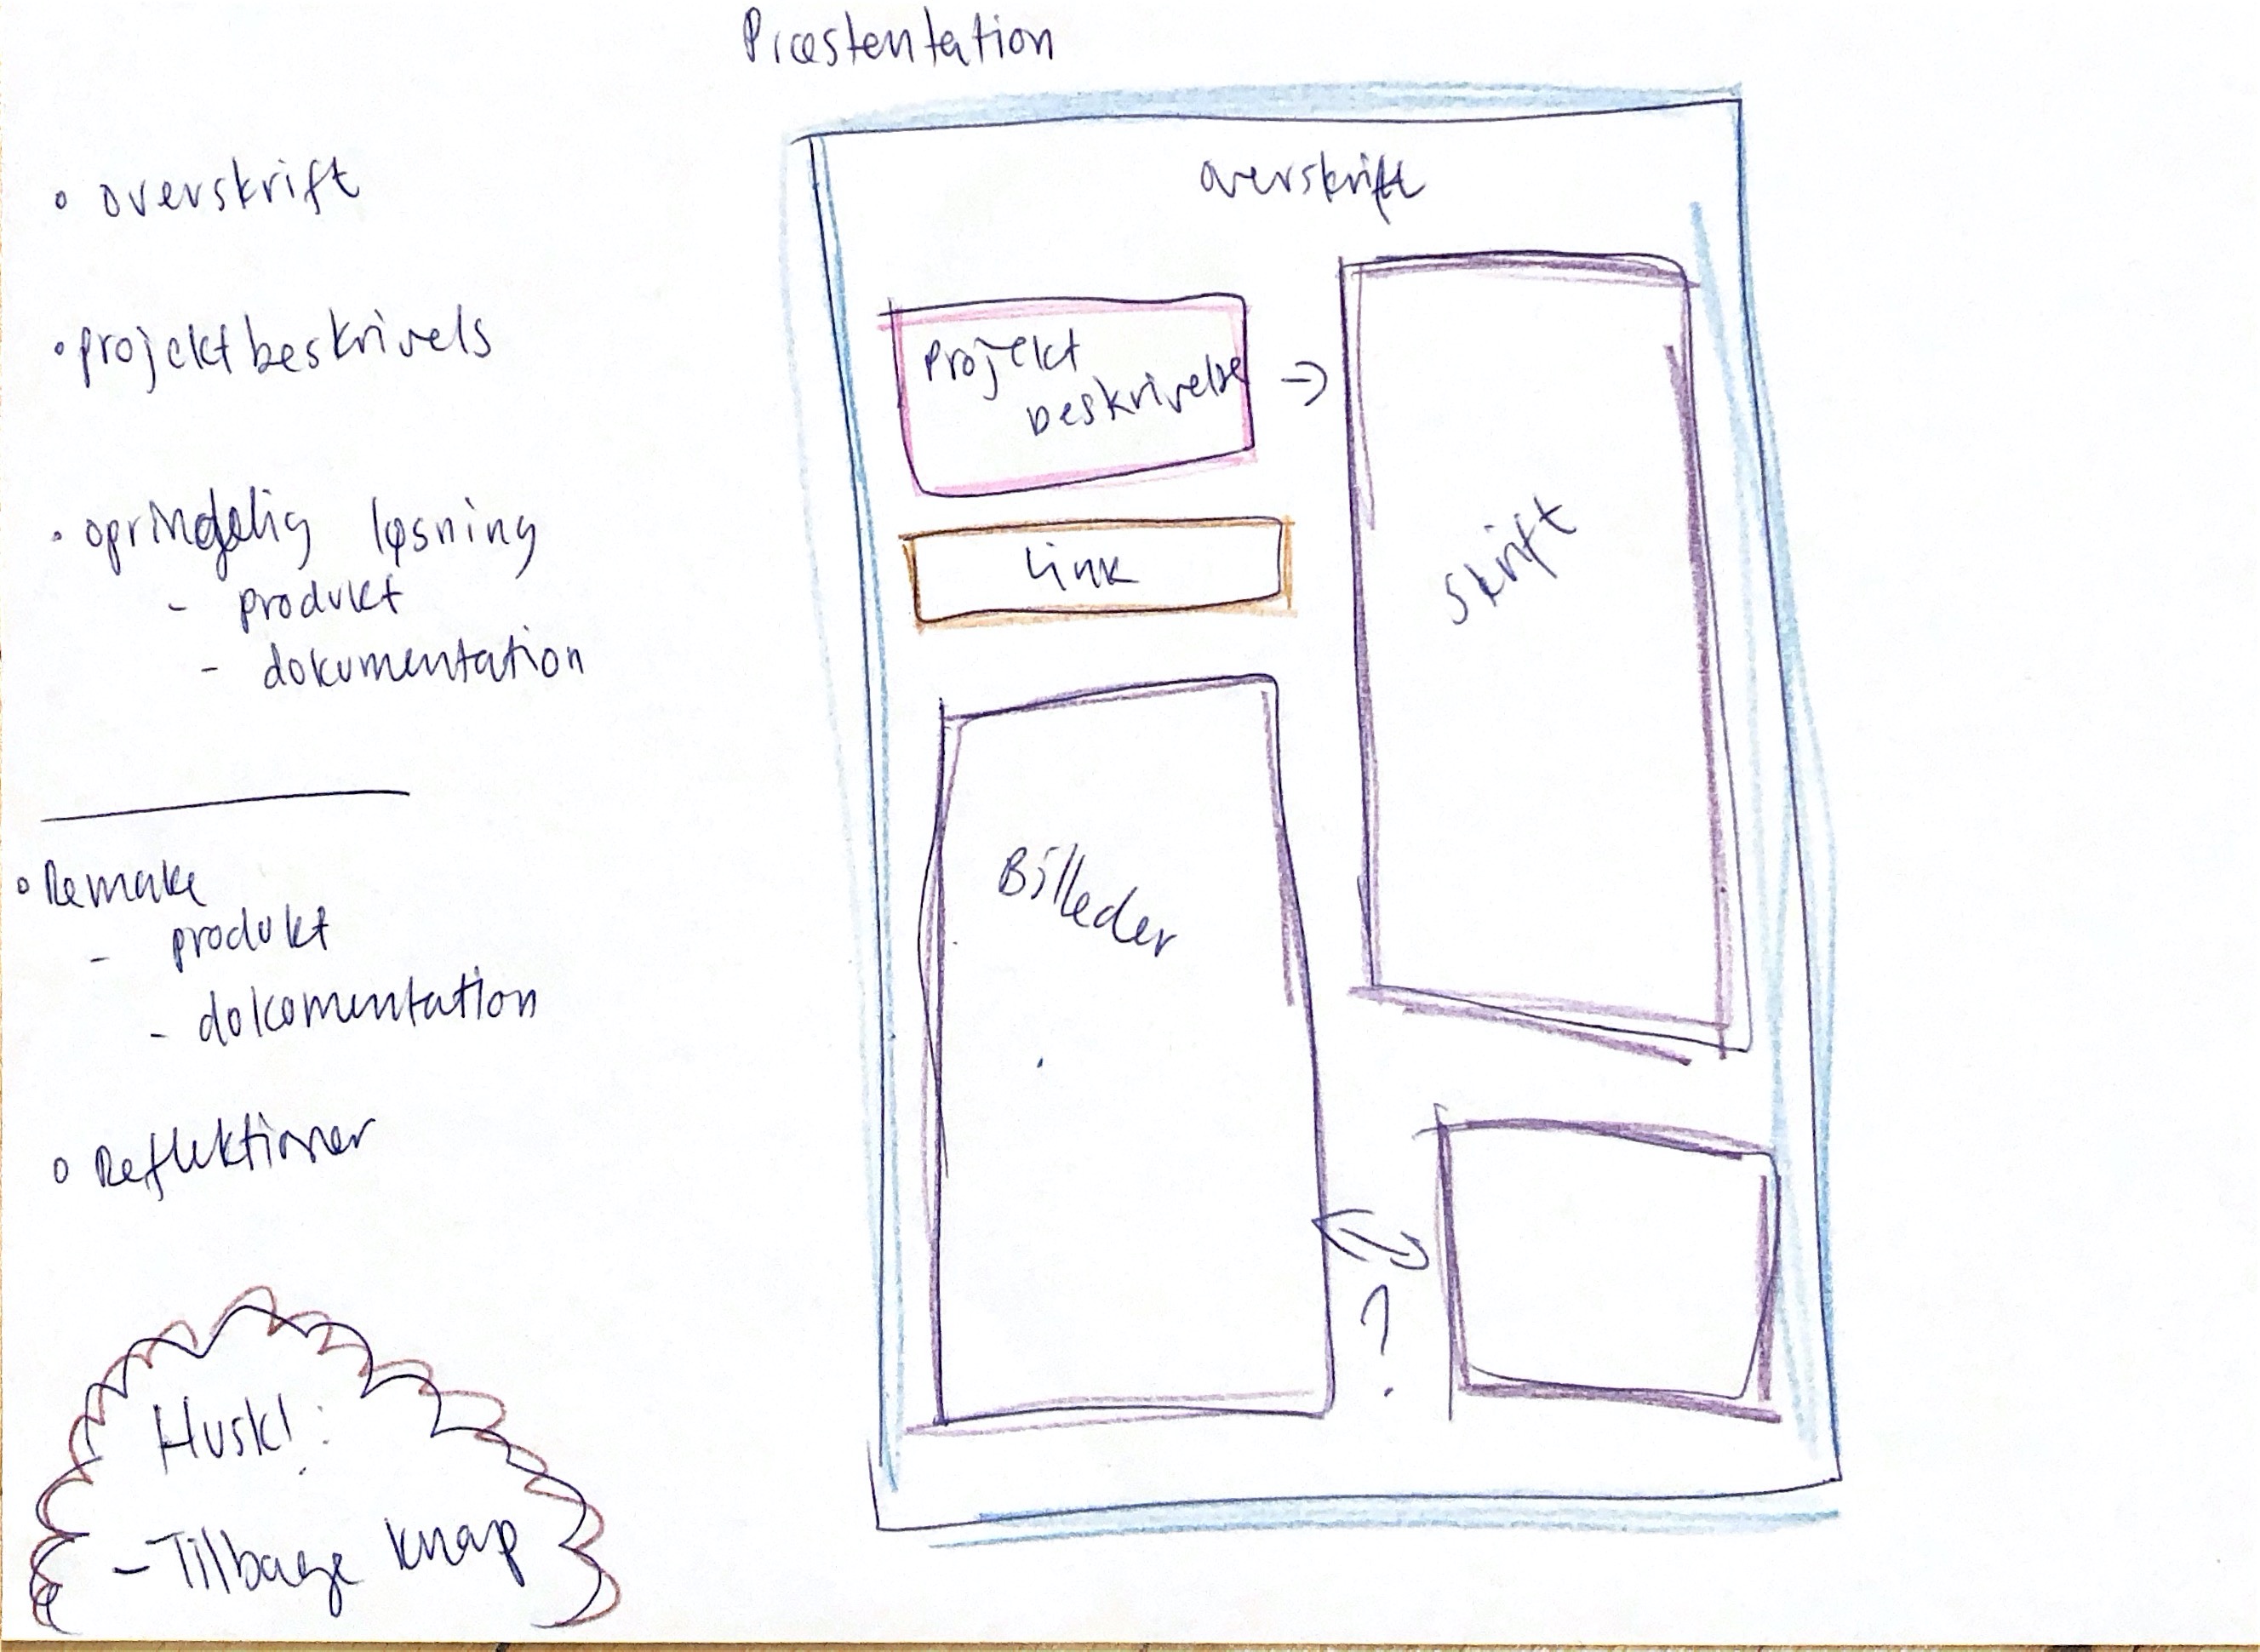 Præstentation
• overskrift
• projektbeskrivels
• opringdelig løsning
- produkt
- dokumentation
• Remake
- produkt
- dokomentation
• Reflektioner
Husk! :
- Tilbage knap
overskrift
Projekt
beskrivelse →
Link
Skrift
Billeder
?